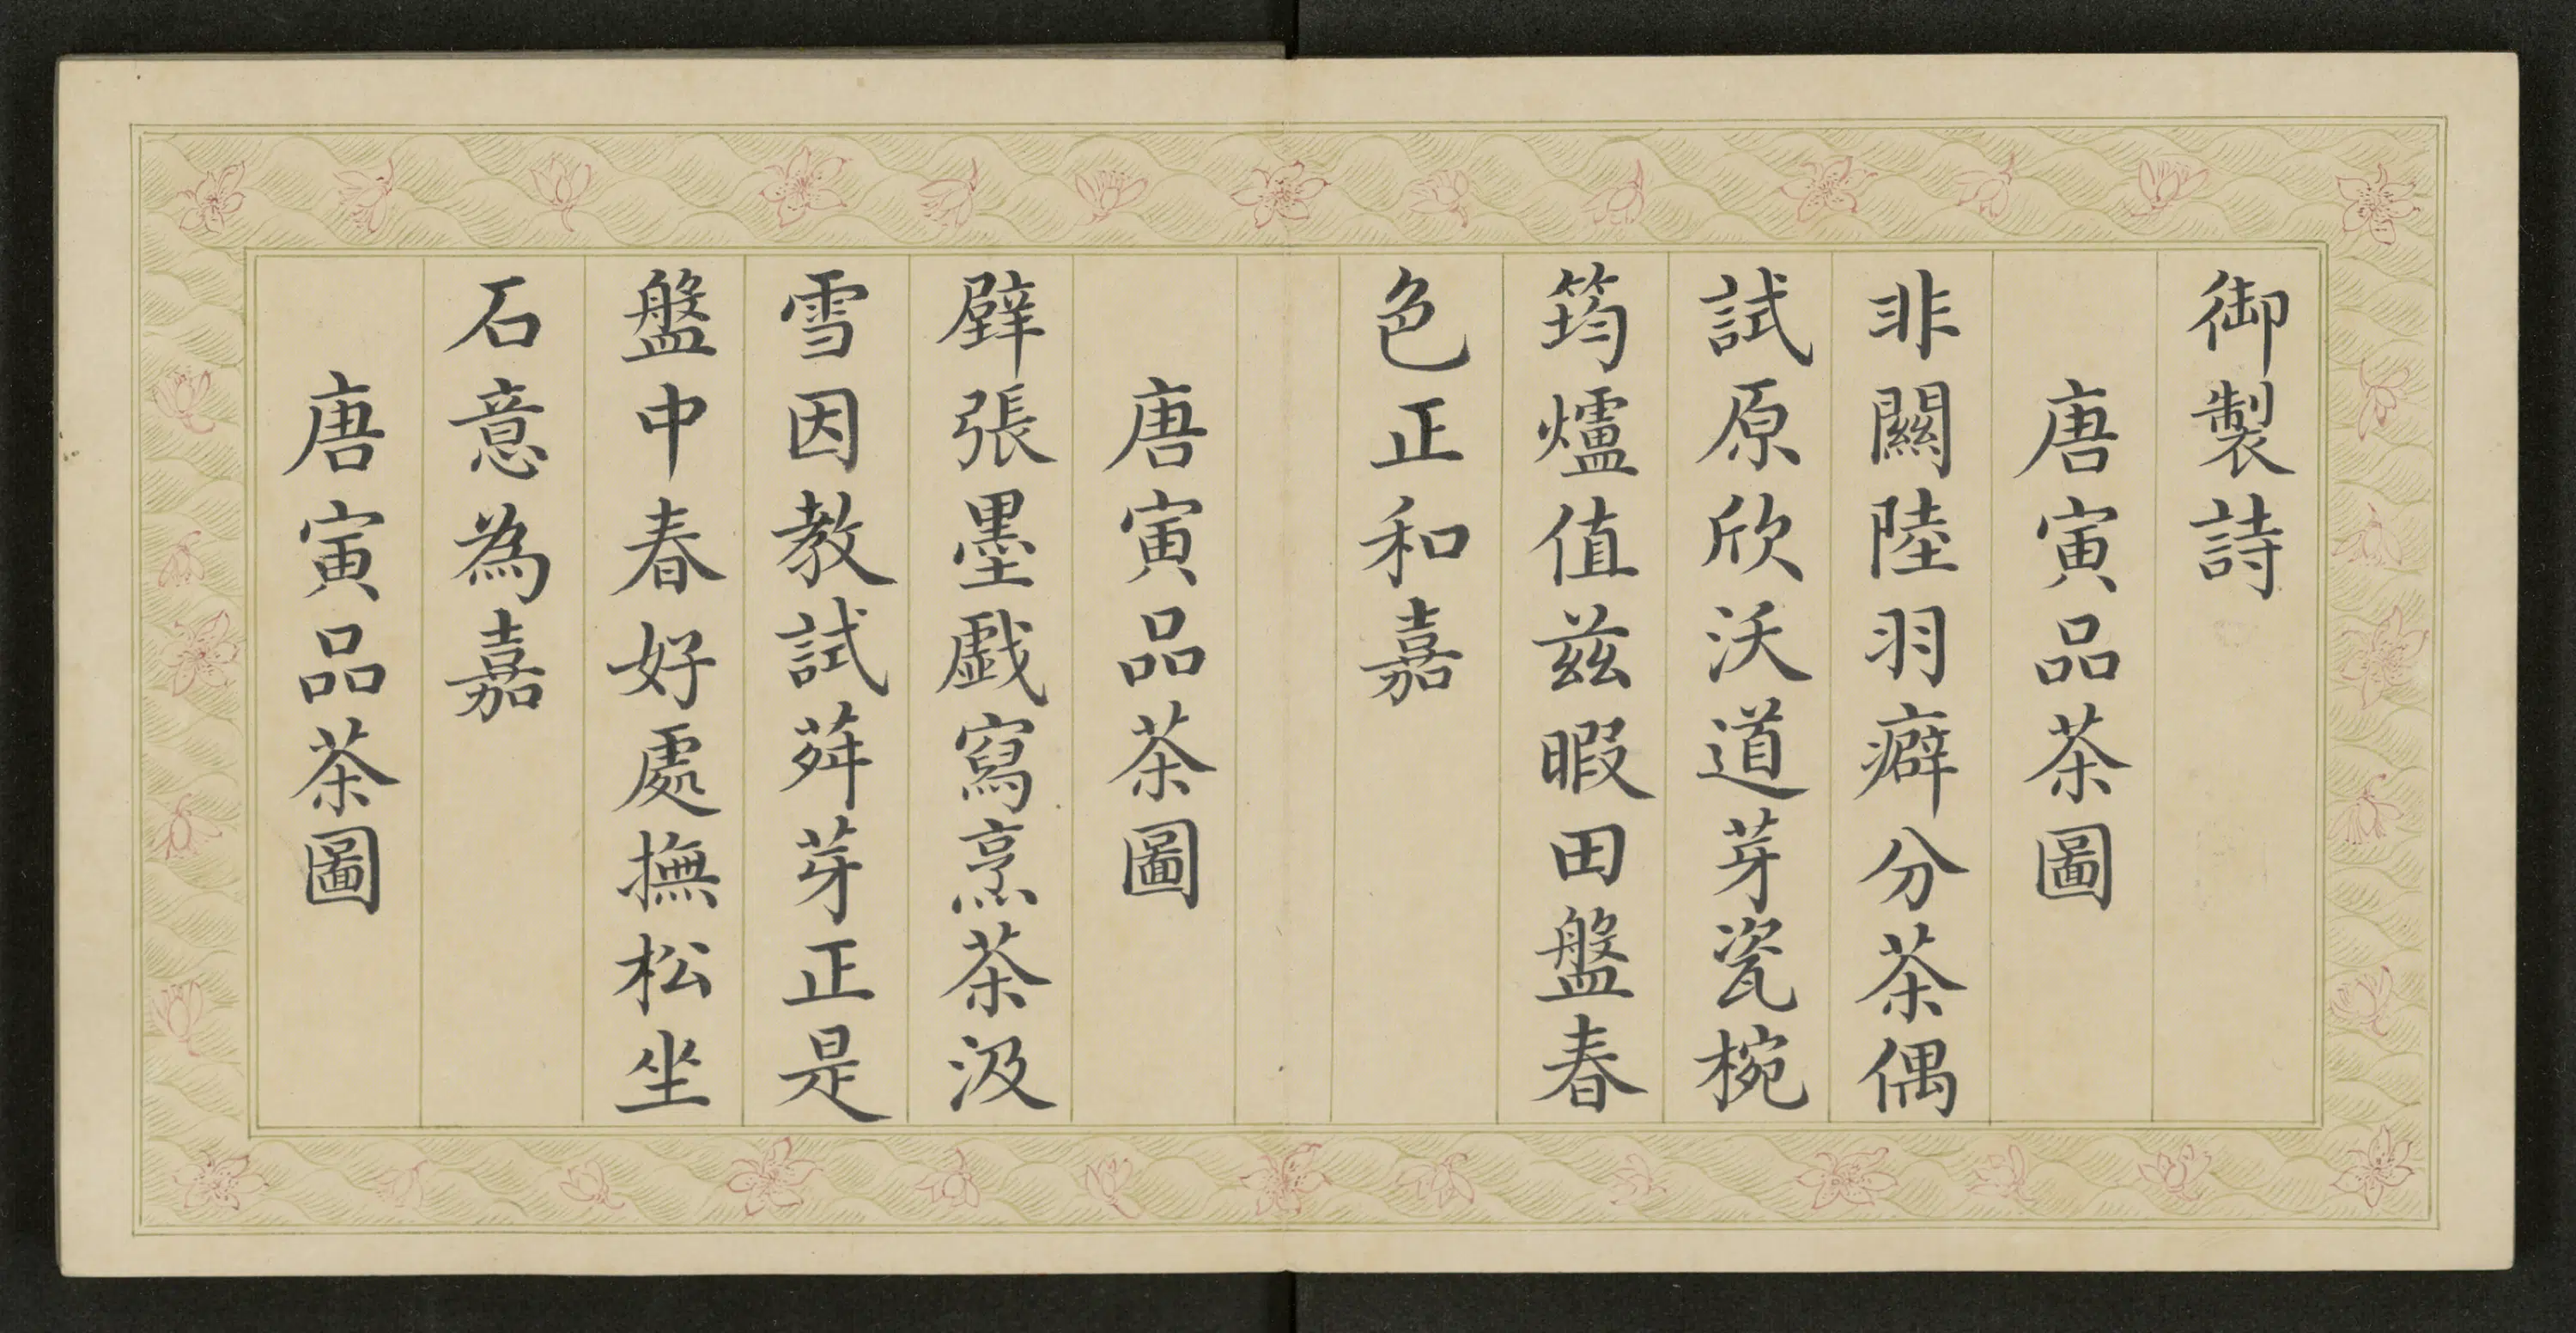 御製詩
唐寅品茶圖
非關陸羽癖分茶偶
試原欣沃道芽瓷椀
筠爐值茲暇田盤春
色正和嘉
唐寅品茶圖
擘張墨戲寫烹茶汲
雪因教試荈芽正是
盤中春好處撫松坐
石意為嘉
唐寅品茶圖